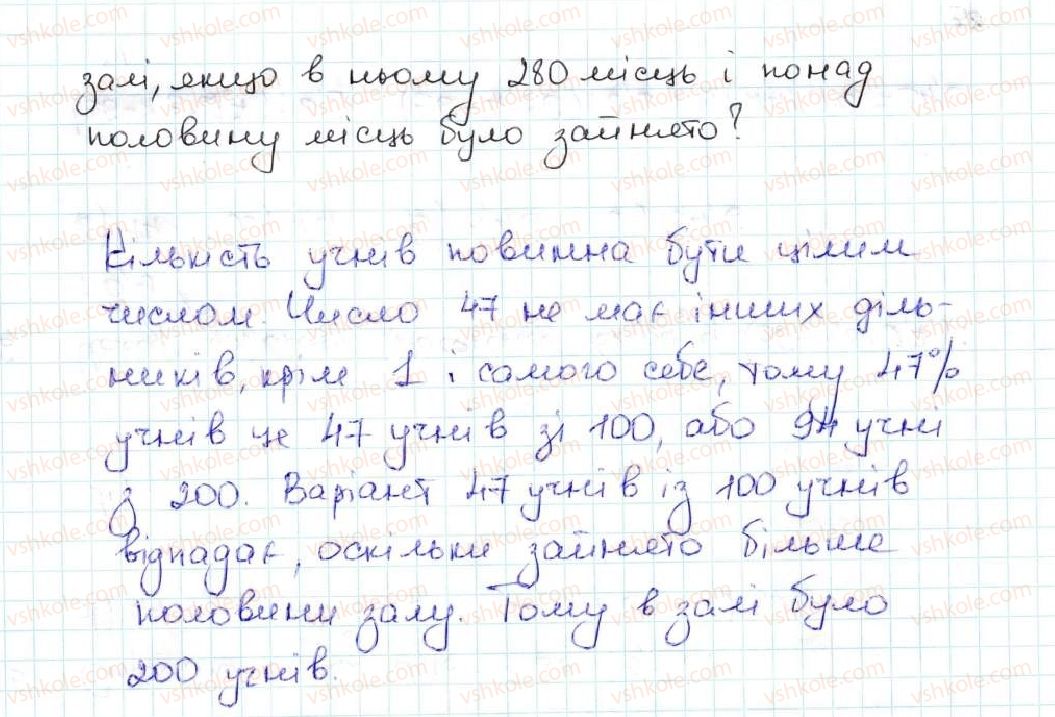 залі, якщо в ньому 280 місць і понад
половину місць було зайнято?
Кількість учнів повинна бути цілим
числом. Число 47 не має інших діль-
ників, крім 1 і самого себе, тому 47%
учнів це 47 учнів зі 100, або 94 учні
з 200. Варіант 47 учнів із 100 учнів
відпадає, оскільки зайнято більше
половини залу. Тому в залі було
200 учнів.